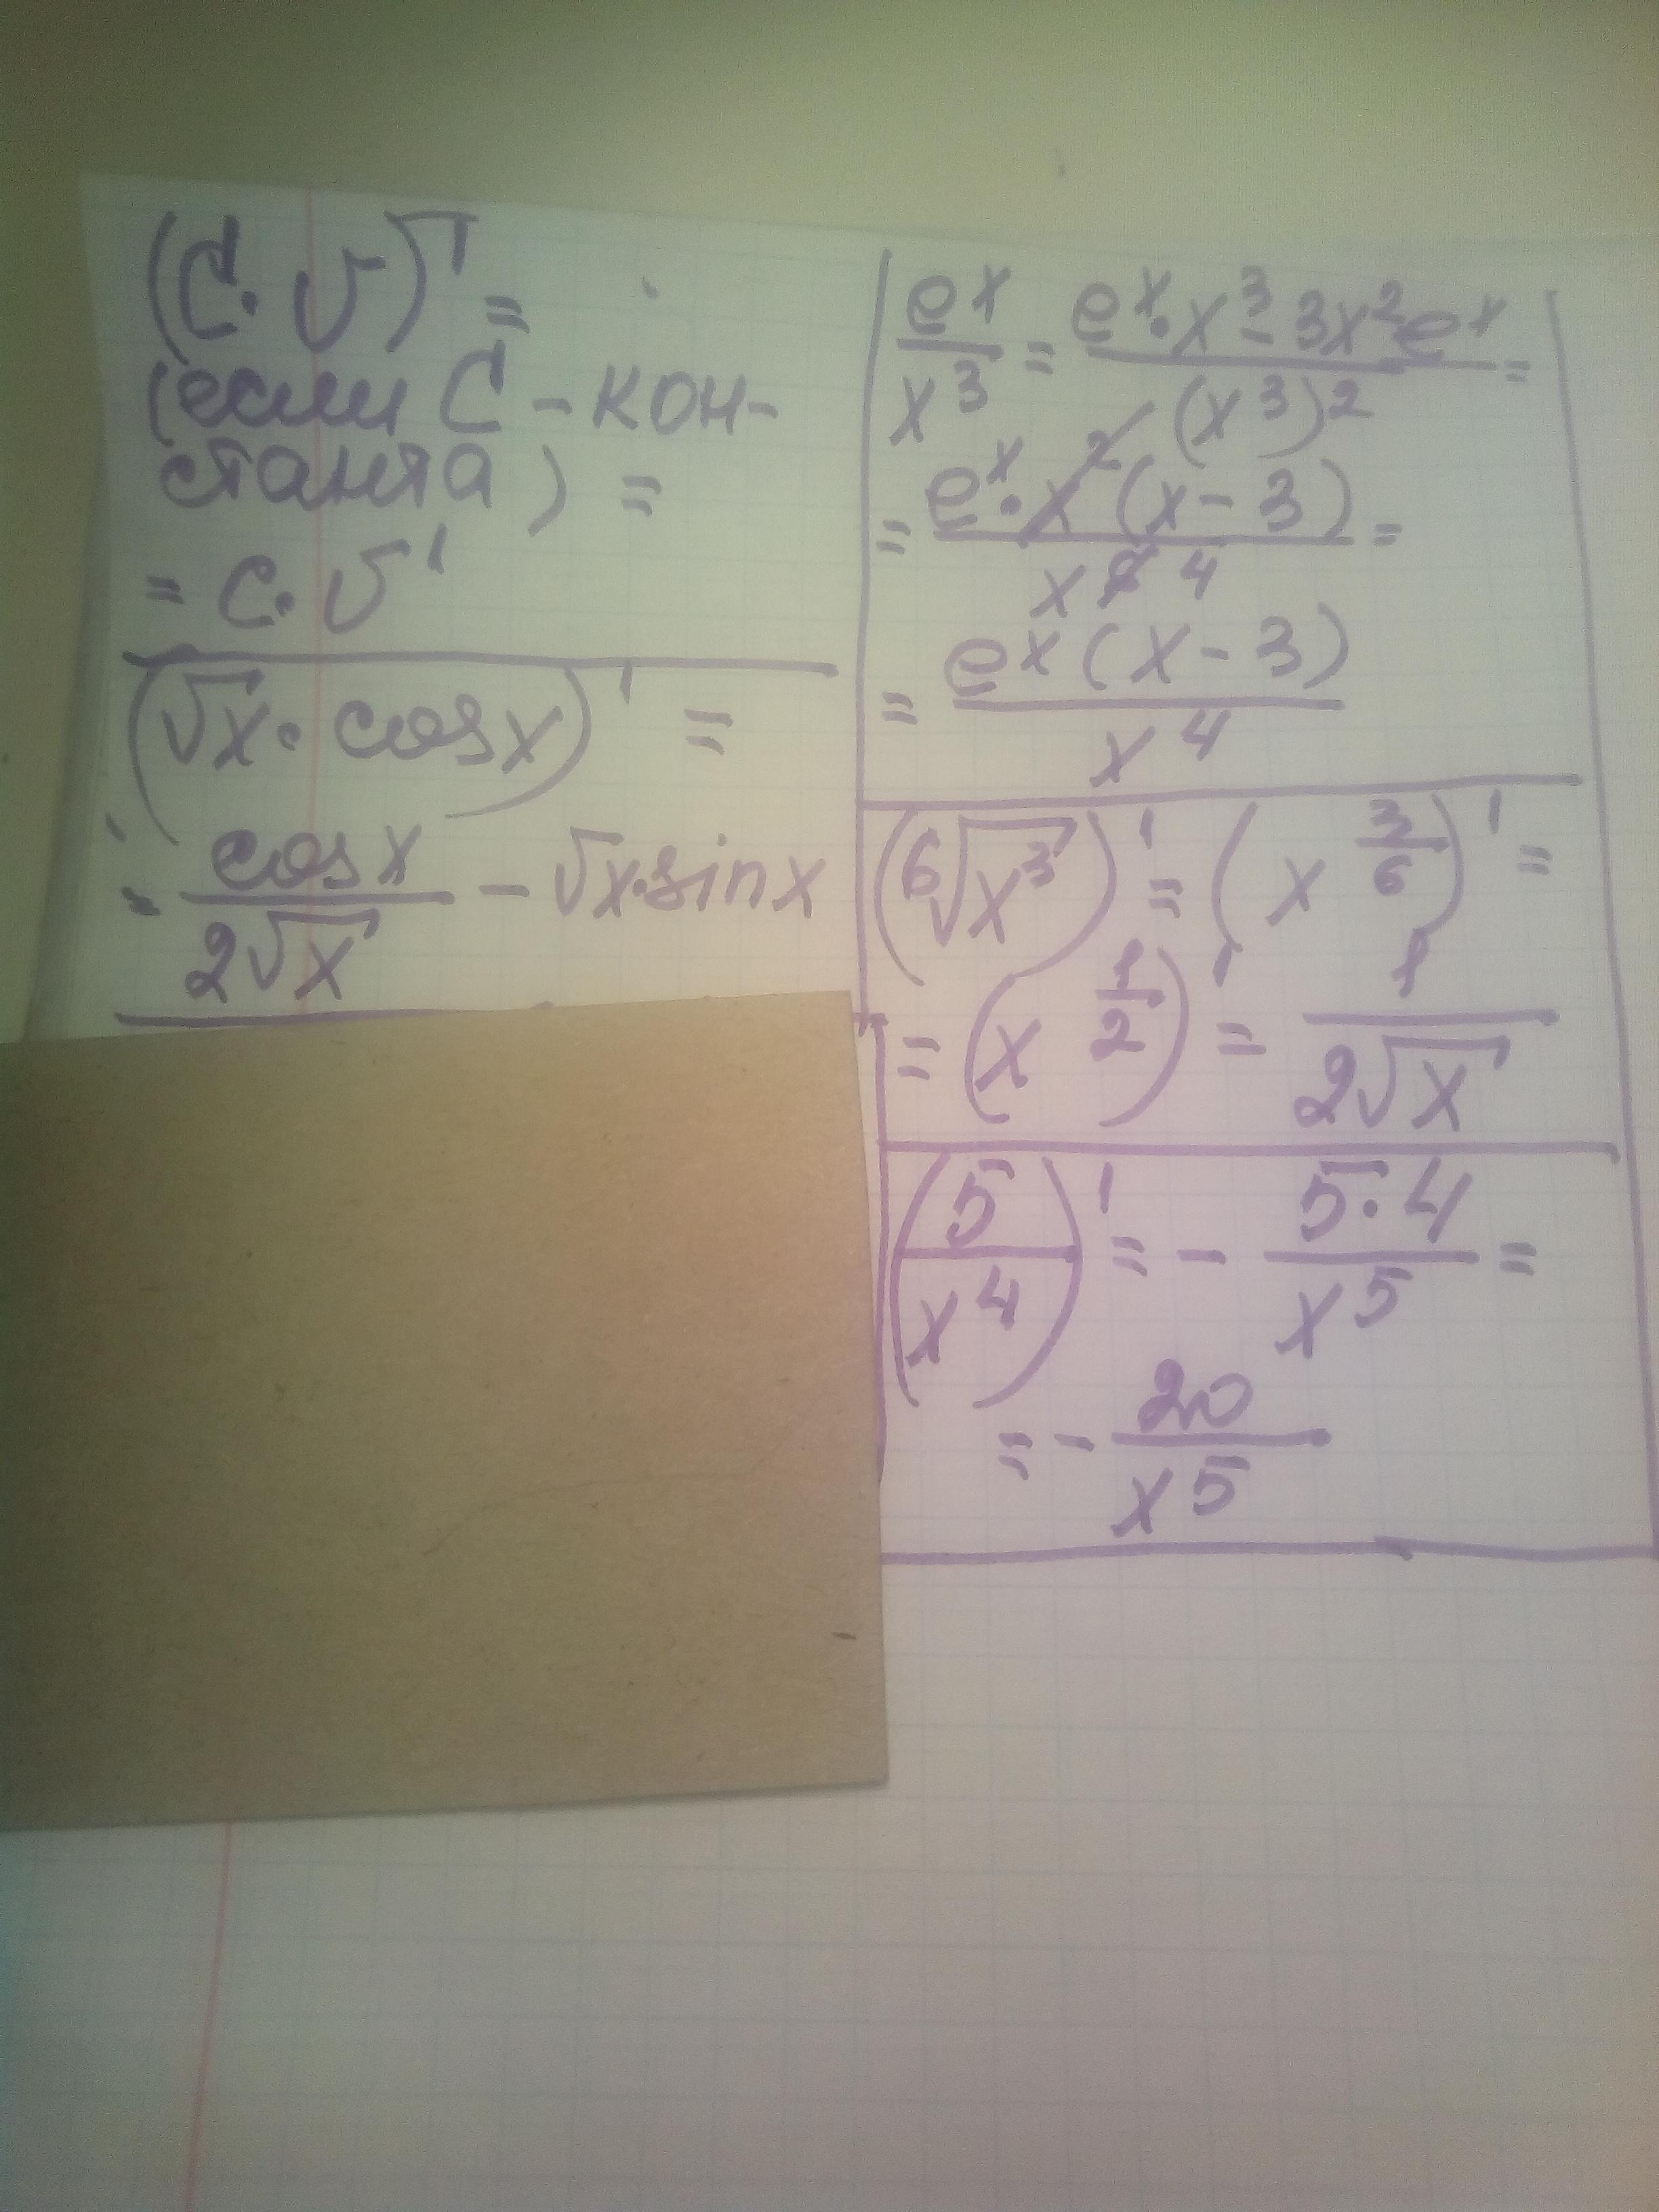 (C·v)' =
(если C - кон-
станта) =
= c·v'
(√x · cosx)' =
= cosx/(2√x) - √x·sinx
e^x/x^3 = (e^x·x^3 - 3x^2e^x)/(x^3)^2 =
= e^x·x^2(x-3)/x^6 4 =
= e^x(x-3)/x^4
(6√x^3)' = (x^(3/6))' =
= (x^(1/2))' = 1/(2√x)
(5/x^4)' = - 5·4/x^5 =
= - 20/x^5